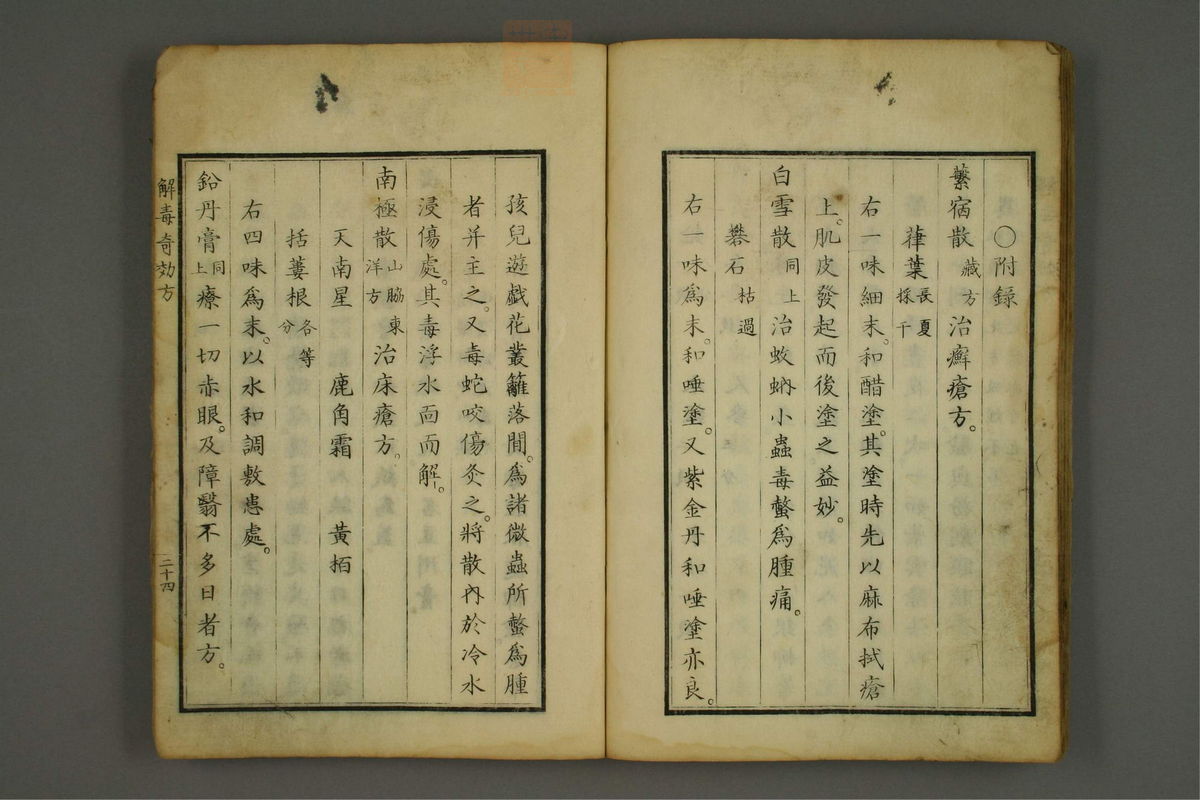 〇附録
蘩宿散藏方治癬瘡方。
葎葉長夏採干
右一味細末。和醋塗。其塗時先以麻布拭瘡
上。肌皮發起而後塗之益妙。
白雪散同上治蚊蚋小蟲毒螫爲腫痛。
礬石枯過
右一味爲末。和唾塗。又紫金丹和唾塗亦良。
孩兒遊戯花叢籬落間。爲諸微蟲所螫爲腫
者并主之。又毒蛇咬傷灸之。將散內於冷水
浸傷處。其毒浮水面而解。
南極散山脇東洋方治床瘡方。
天南星 鹿角霜 黃栢
括蔞根各等分
右四味爲末。以水和調敷患處。
鉛丹膏同上療一切赤眼。及障翳不多日者方。
解毒奇効方
二十四